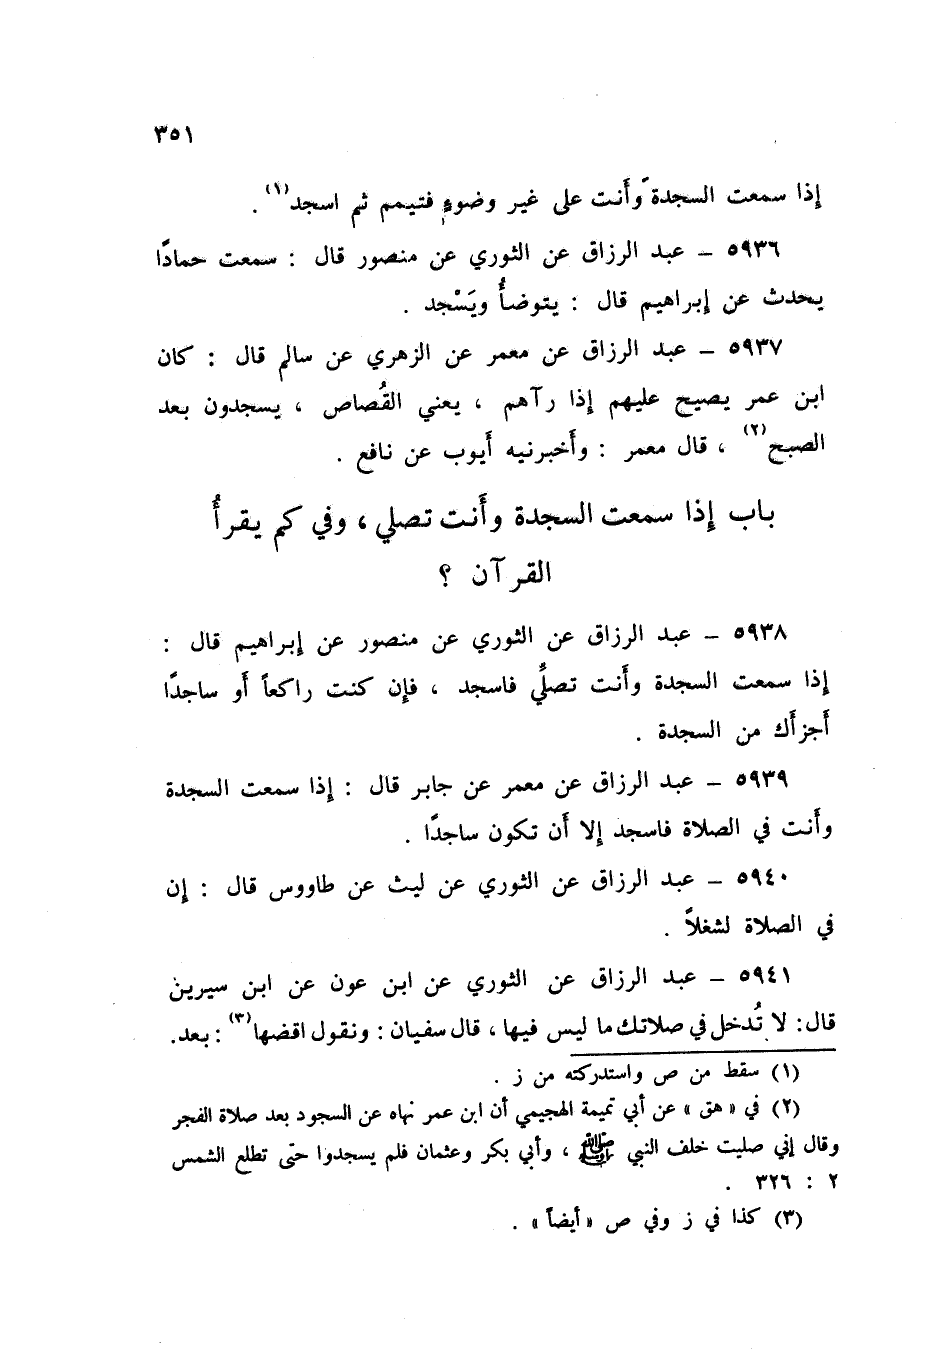 ٣٥١
إذا سمعت السجدة وأَنت على غير وضوءٍ فتيمم ثم اسجد(١) .
٥٩٣٦ ــ عبد الرزاق عن الثوري عن منصور قال : سمعت حمادًا
يحدث عن إبراهيم قال : يتوضأُ ويَسْجد .
٥٩٣٧ ــ عبد الرزاق عن معمر عن الزهري عن سالم قال : كان
ابن عمر يصيح عليهم إذا رآهم ، يعني القُصاص ، يسجدون بعد
الصبح(٢) ، قال معمر : وأَخبرنيه أَيوب عن نافع .
باب إذا سمعت السجدة وأَنت تصلي ، وفي كم يقرأُ
القرآن ؟
٥٩٣٨ ــ عبد الرزاق عن الثوري عن منصور عن إبراهيم قال :
إذا سمعت السجدة وأَنت تصلِّي فاسجد ، فإن كنت راكعاً أَو ساجدًا
أَجزأَك من السجدة .
٥٩٣٩ ــ عبد الرزاق عن معمر عن جابر قال : إذا سمعت السجدة
وأَنت في الصلاة فاسجد إلا أَن تكون ساجدًا .
٥٩٤٠ ــ عبد الرزاق عن الثوري عن ليث عن طاووس قال : إن
في الصلاة لشغلاً .
٥٩٤١ ــ عبد الرزاق عن الثوري عن ابن عون عن ابن سيرين
قال : لا تُدخل في صلاتك ما ليس فيها ، قال سفيان : ونقول اقضها(٣) : بعد.
(١) سقط من ص واستدركته من ز .
(٢) في « هق » عن أبي تميمة الهجيمي أن ابن عمر نهاه عن السجود بعد صلاة الفجر
وقال إني صليت خلف النبي ﷺ ، وأبي بكر وعثمان فلم يسجدوا حتى تطلع الشمس
٢ : ٣٢٦ .
(٣) كذا في ز وفي ص « أيضاً » .